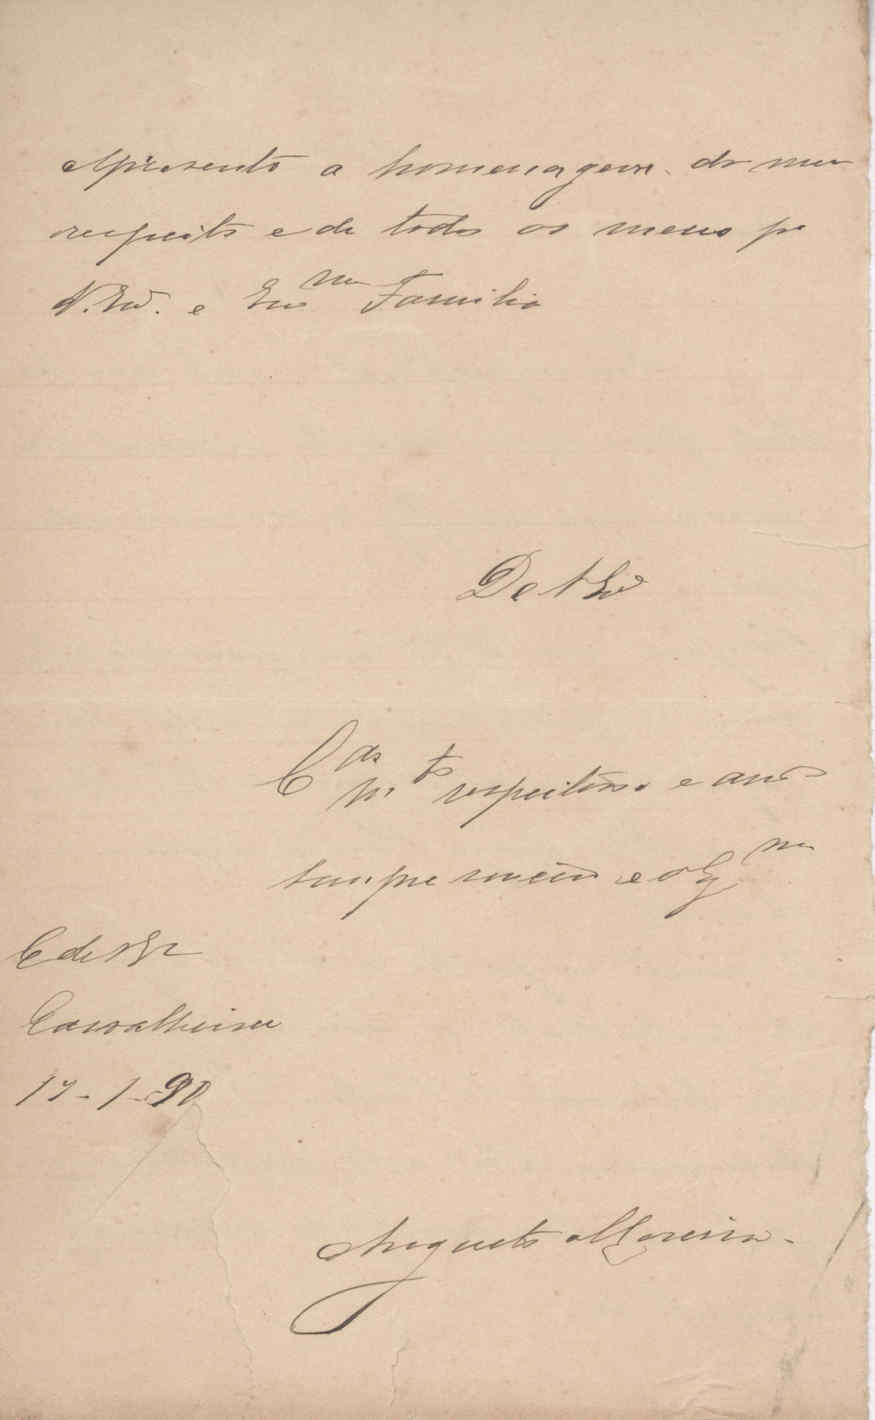 Apresento a homenagem do meu
respeito e de todos os meus pa
V. Exª. e Exma Familia
De V Exª
Cdo
mto respeitoso e amo
sempre e obgmo
C de V Exª
Carvalheira
17-1-90
Augusto Moreira.